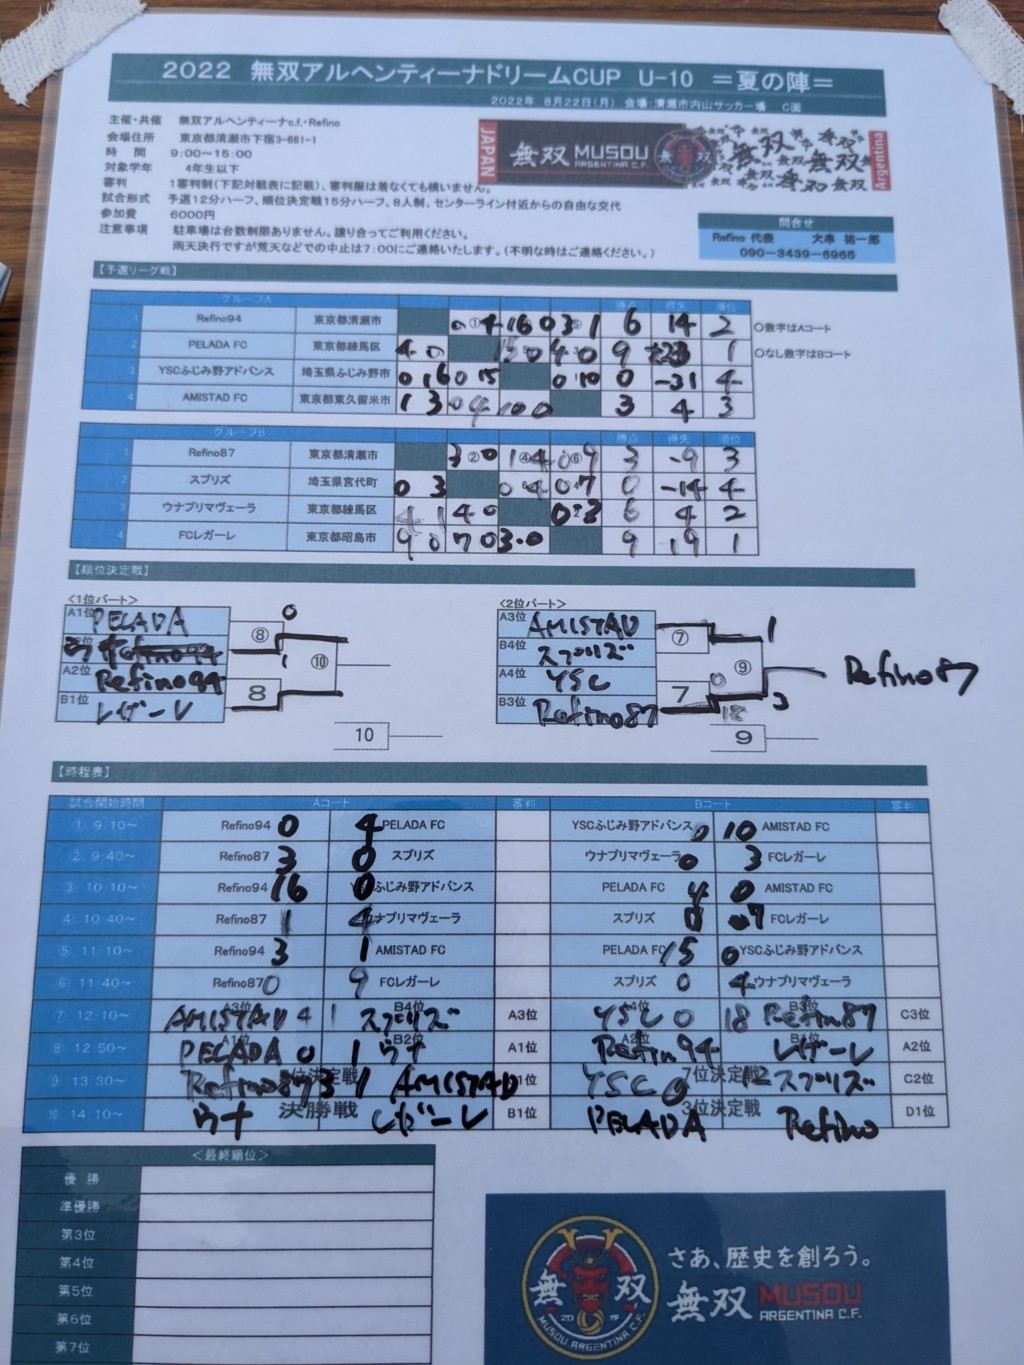 2022 無双アルヘンティーナドリームCUP U-10 =夏の陣=
2022年 8月22日(月) 会場:清瀬市内山サッカー場 C面
主催・共催 無双アルヘンティーナc.f.・Refino
会場住所 東京都清瀬市下宿3-681-1
時 間 9:00〜15:00
対象学年 4年生以下
審判 1審判制(下記対戦表に記載)、審判服は着なくても構いません。
試合形式 予選12分ハーフ、順位決定戦15分ハーフ、8人制、センターライン付近からの自由な交代
参加費 6000円
注意事項 駐車場は台数制限ありません。譲り合ってご利用ください。
雨天決行ですが荒天などでの中止は7:00にご連絡いたします。(不明な時はご連絡ください。)
JAPAN 無双 MUSOU ARGENTINA C.F. 無双 Argentina
問合せ
Refino 代表
090-3439-6965
【予選リーグ戦】
グループA 勝点 得失 順位
1 Refino94 東京都清瀬市 0 ① 4 16 0 3 1 6 14 2
2 PELADA FC 東京都練馬区 4 0 15 0 4 0 9 23 1
3 YSCふじみ野アドバンス 埼玉県ふじみ野市 0 16 0 15 0 10 0 -31 4
4 AMISTAD FC 東京都東久留米市 1 3 0 4 10 0 3 4 3
○数字はAコート
○なし数字はBコート
グループB 勝点 得失 順位
1 Refino87 東京都清瀬市 3 ② 0 1 ④ 4 0 ⑥ 9 3 -9 3
2 スプリズ 埼玉県宮代町 0 3 0 4 0 7 0 -14 4
3 ウナプリマヴェーラ 東京都練馬区 4 1 4 0 0 2 3 6 4 2
4 FCレガーレ 東京都昭島市 9 0 7 0 3-0 9 19 1
【順位決定戦】
<1位パート>
A1位 PELADA 0
⑧
1
A2位 Refino94
⑩
B1位 レガーレ
8
10
<2位パート>
A3位 AMISTAD
⑦ 1
B4位 スプリズ
⑨ Refino87
A4位 YSC 0
7 3
B3位 Refino87 18
9
【時程表】
試合開始時間 Aコート 審判 Bコート 審判
① 9:10〜 Refino94 0 4 PELADA FC YSCふじみ野アドバンス 0 10 AMISTAD FC
② 9:40〜 Refino87 3 0 スプリズ ウナプリマヴェーラ 0 3 FCレガーレ
③ 10:10〜 Refino94 16 0 YSCふじみ野アドバンス PELADA FC 4 0 AMISTAD FC
④ 10:40〜 Refino87 1 4 ウナプリマヴェーラ スプリズ 0 7 FCレガーレ
⑤ 11:10〜 Refino94 3 1 AMISTAD FC PELADA FC 15 0 YSCふじみ野アドバンス
⑥ 11:40〜 Refino87 0 9 FCレガーレ スプリズ 0 4 ウナプリマヴェーラ
⑦ 12:10〜 A3位 AMISTAD 4 1 B4位 スプリズ A3位 A4位 YSC 0 18 B3位 Refin87 C3位
⑧ 12:50〜 A1位 PELADA 0 1 B2位 ウナ A1位 A2位 Refin94 B1位 レガーレ A2位
⑨ 13:30〜 Refino87 3 位決定戦 1 AMISTAD 1位 YSC 0 7位決定戦 12 スプリズ C2位
⑩ 14:10〜 ウナ 決勝戦 レガーレ B1位 PELADA 3位決定戦 Refino D1位
<最終順位>
優 勝
準優勝
第3位
第4位
第5位
第6位
第7位
無双
2019
MUSOU ARGENTINA C.F.
さあ、歴史を創ろう。
無双 MUSOU
ARGENTINA C.F.